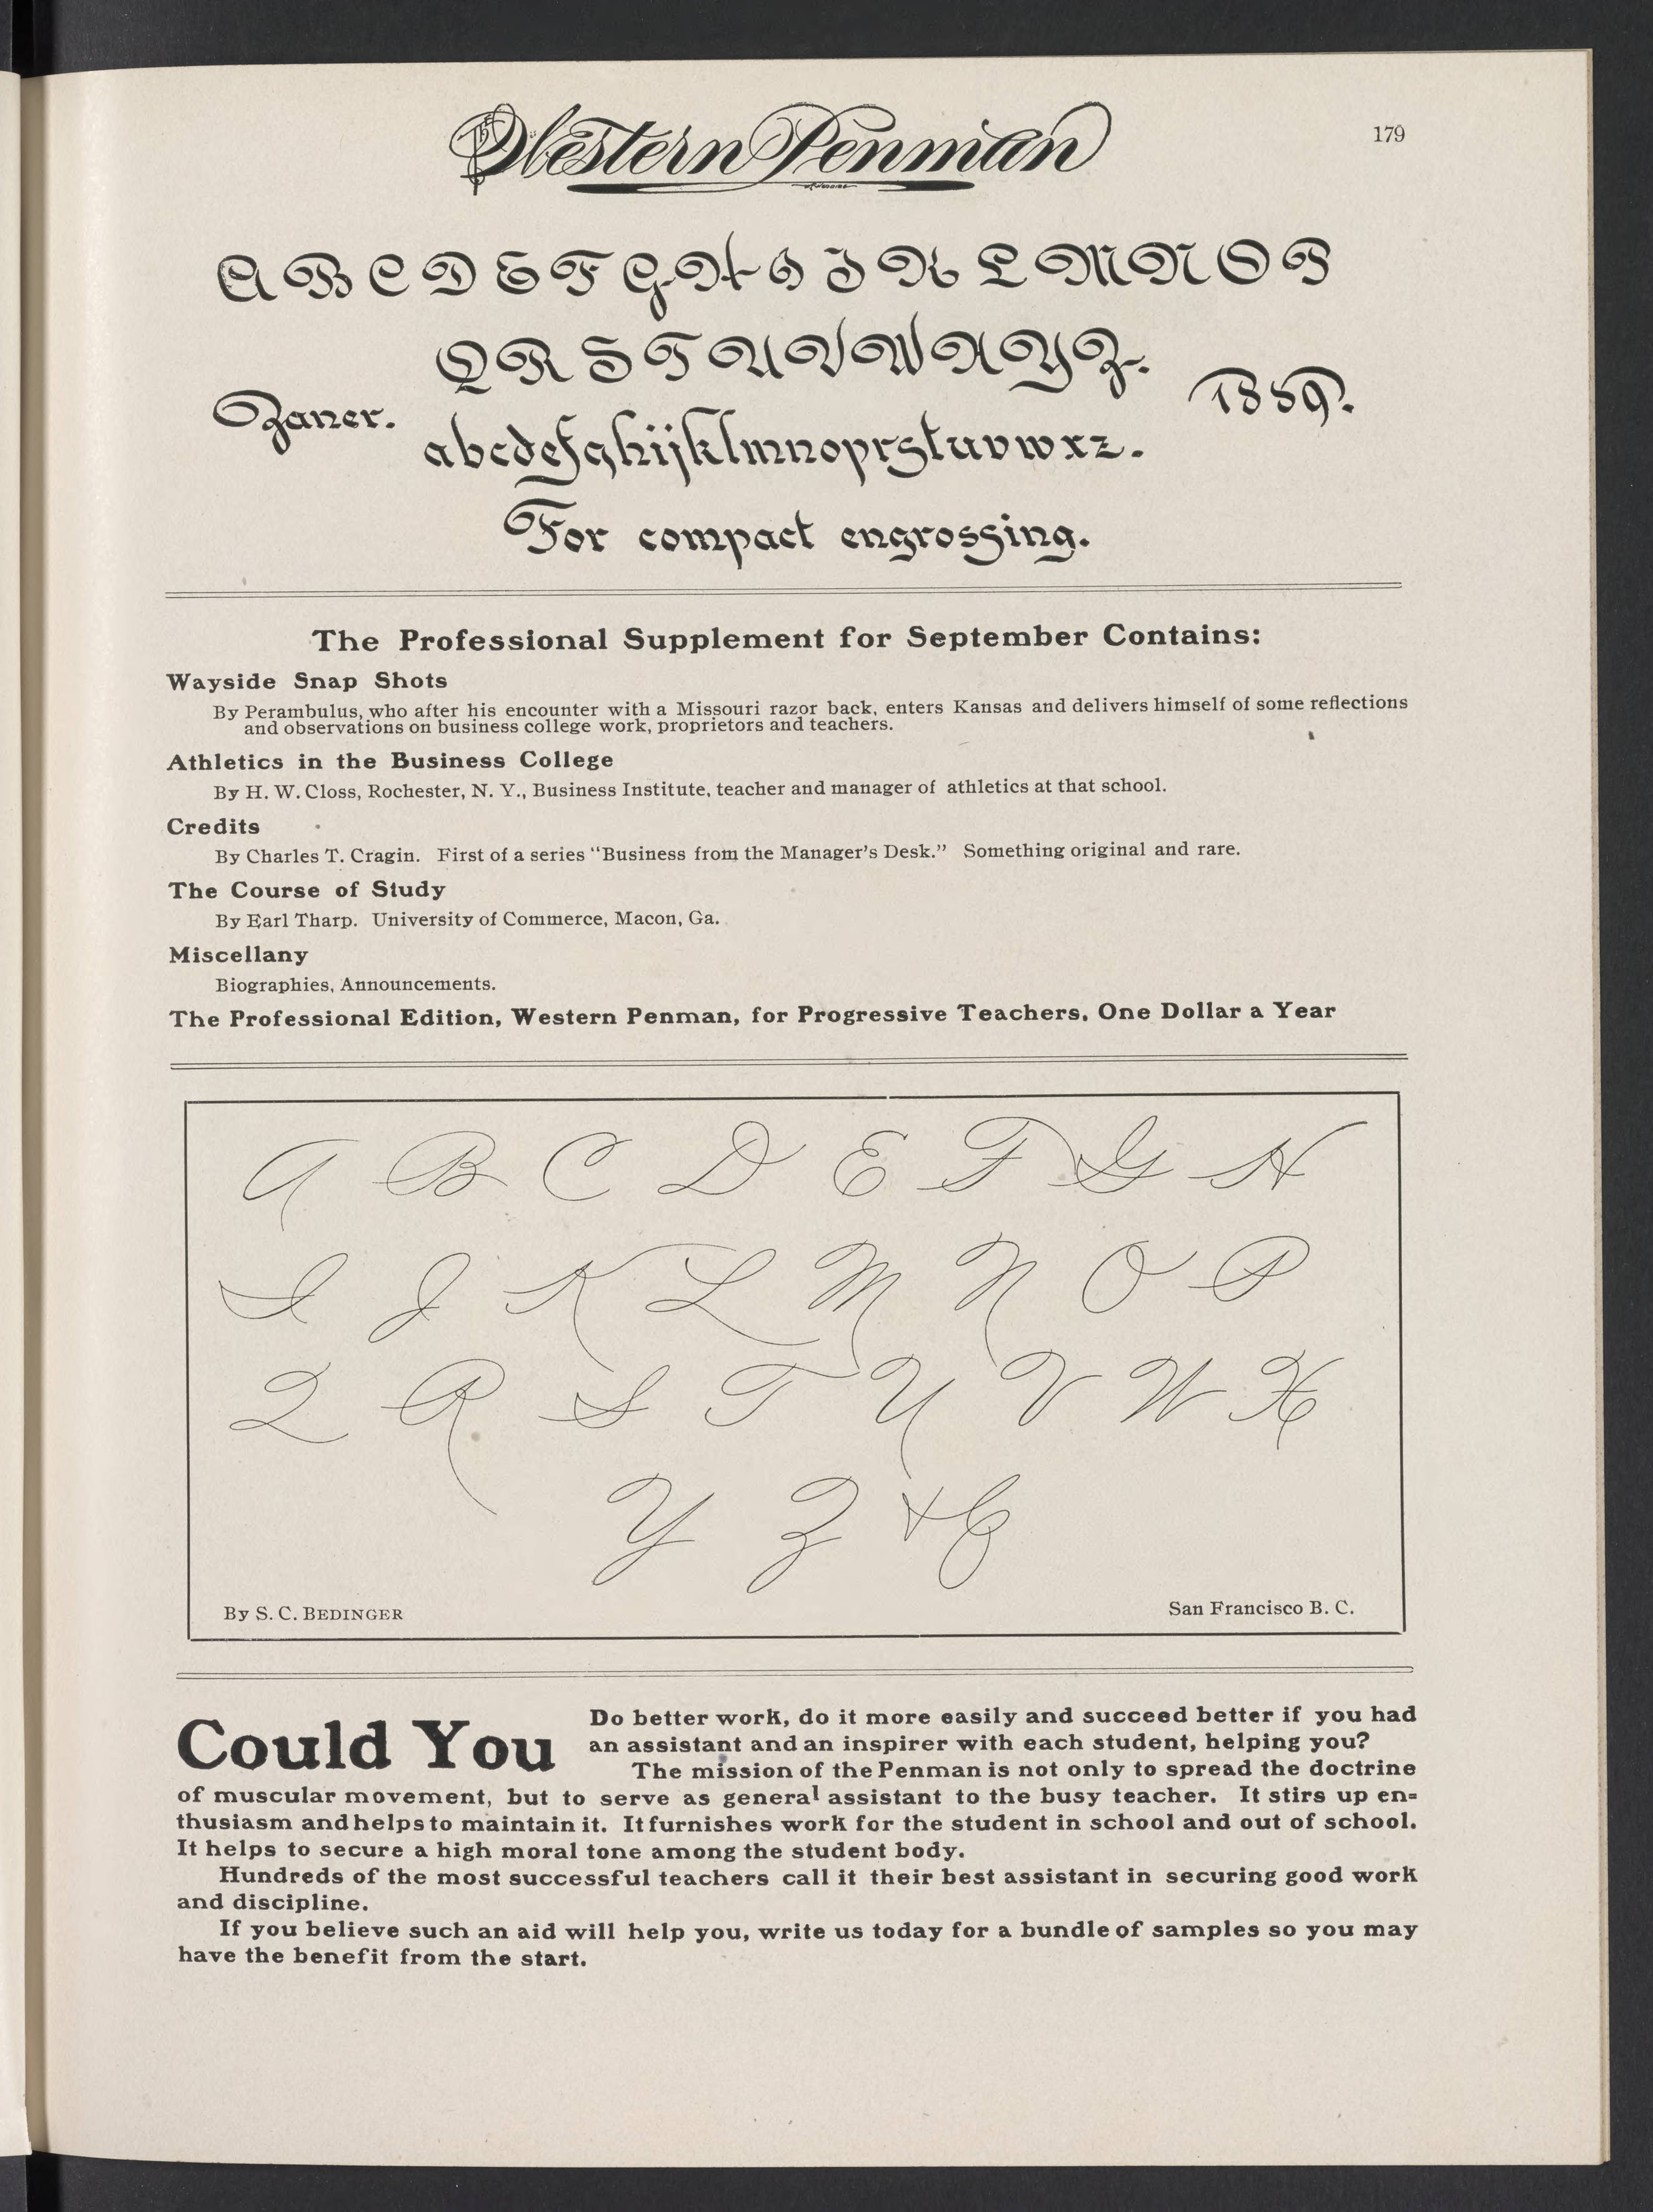 The Western Penman
179
A B C D E F G H I J K L M N O P
Q R S T U V W X Y Z.
Zaner.
1889.
abcdefghijklmnoprstuvwxz.
For compact engrossing.
The Professional Supplement for September Contains:
Wayside Snap Shots
By Perambulus, who after his encounter with a Missouri razor back, enters Kansas and delivers himself of some reflections
and observations on business college work, proprietors and teachers.
Athletics in the Business College
By H. W. Closs, Rochester, N. Y., Business Institute, teacher and manager of athletics at that school.
Credits
By Charles T. Cragin. First of a series “Business from the Manager’s Desk.” Something original and rare.
The Course of Study
By Earl Tharp. University of Commerce, Macon, Ga.
Miscellany
Biographies, Announcements.
The Professional Edition, Western Penman, for Progressive Teachers, One Dollar a Year
A B C D E F G H
I J K L M N O P
Q R S T U V W X
Y Z &
By S. C. BEDINGER
San Francisco B. C.
Could You
Do better work, do it more easily and succeed better if you had
an assistant and an inspirer with each student, helping you?
The mission of the Penman is not only to spread the doctrine
of muscular movement, but to serve as general assistant to the busy teacher. It stirs up en=
thusiasm and helps to maintain it. It furnishes work for the student in school and out of school.
It helps to secure a high moral tone among the student body.
Hundreds of the most successful teachers call it their best assistant in securing good work
and discipline.
If you believe such an aid will help you, write us today for a bundle of samples so you may
have the benefit from the start.